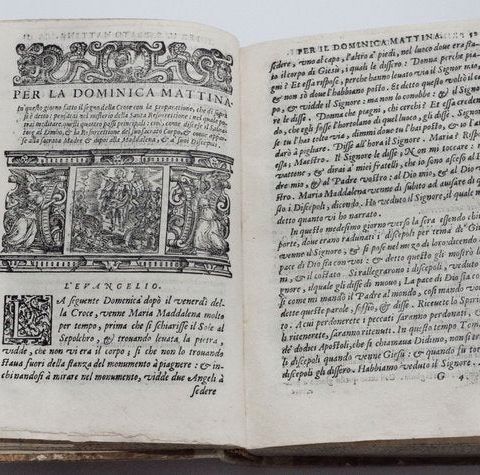 PER LA DOMINICA MATTINA.
In questo giorno fatto il segno della Croce con la preparatione, che di sopra
si è detto: penderai nel misterio della Santa Resurrettione: nel qual
trai meditare questi quattro passi principali: come, come discese il Salvator
al Limbo, & la Resurrettione del suo sacrato Corpo, & come apparse
alla sacrata Madre & dipoi alla Maddalena, & a suoi Discepoli.
L'EVANGELIO.
LA seguente Domenica dopò il venerdì del-
la Croce, venne Maria Maddalena molto
per tempo, prima che si schiarisse il Sole al
Sepolchro, & trovando levata, la pietra,
vidde, che non vi era il corpo; si che non lo trouando
stava fuori della stanza del monumento à piagnere: & in-
chinandosi à mirare nel monumento, vidde due Angeli à
sedere
PER IL DOMINICA MATTINA. 52
sedere, uno al capo, l'altro a' piedi, nel luoco dove era sta-
to il corpo di Giesù, i quali le dissero: Donna perche pia-
gni? Et essa rispose, perche hanno levato via il Signor mio,
& non sò doue l'habbiano posto. Et detto questo voltò il ca-
po, & vidde il Signore: ma non lo conobbe: & il Signor
re le disse. Donna che piagni, chi cerchi? Et essa credendo,
che egli fosse l'hortolano di quel luoco, gli disse. Signor
se tu l'hai tolto via, dimmi doue tu l'hai posto, & io
darò a pigliare. Disse all'hora il Signore: Maria? Rispose
essa; Maestro. Il Signore le disse, Non mi toccare:
vattone, & dirai a miei fratelli, che io sono asceso al
dre mio, & al Padre vostro: al Dio mio, & al Dio
stro. Maria Maddalena venne di subito ad avisare di
sto i Discepoli, dicendo. Ho veduto il Signore, il quale
detto quanto vi ho narrato.
In questo medesimo giorno verso la sera essendo chiuse
porte, dove erano radunati i discepoli per tema de' Giudei
venne il Signore, & si pose nel mezo di loro dicendo
pace di Dio sia con voi: & detto questo gli mostrò le
ni, & il costato. Si rallegrarono i discepoli, veduto
gnore, ilquale gli disse di nuovo; La pace di Dio sia con
si come mi mandò il Padre al mondo, così mando voi
dette queste parole, soffiò, & disse. Ricevete lo Spirito
to. A cui perdonerete i peccati saranno perdonati,
li ritenerete, saranno ritenuti. In questo tempo Tomaso
de' dodici Apostoli, che si chiamava Didimo, non si
discepoli quando venne Giesù: & quando fu tornato
scepoli gli dissero. Habbiamo veduto il Signore.
G 4